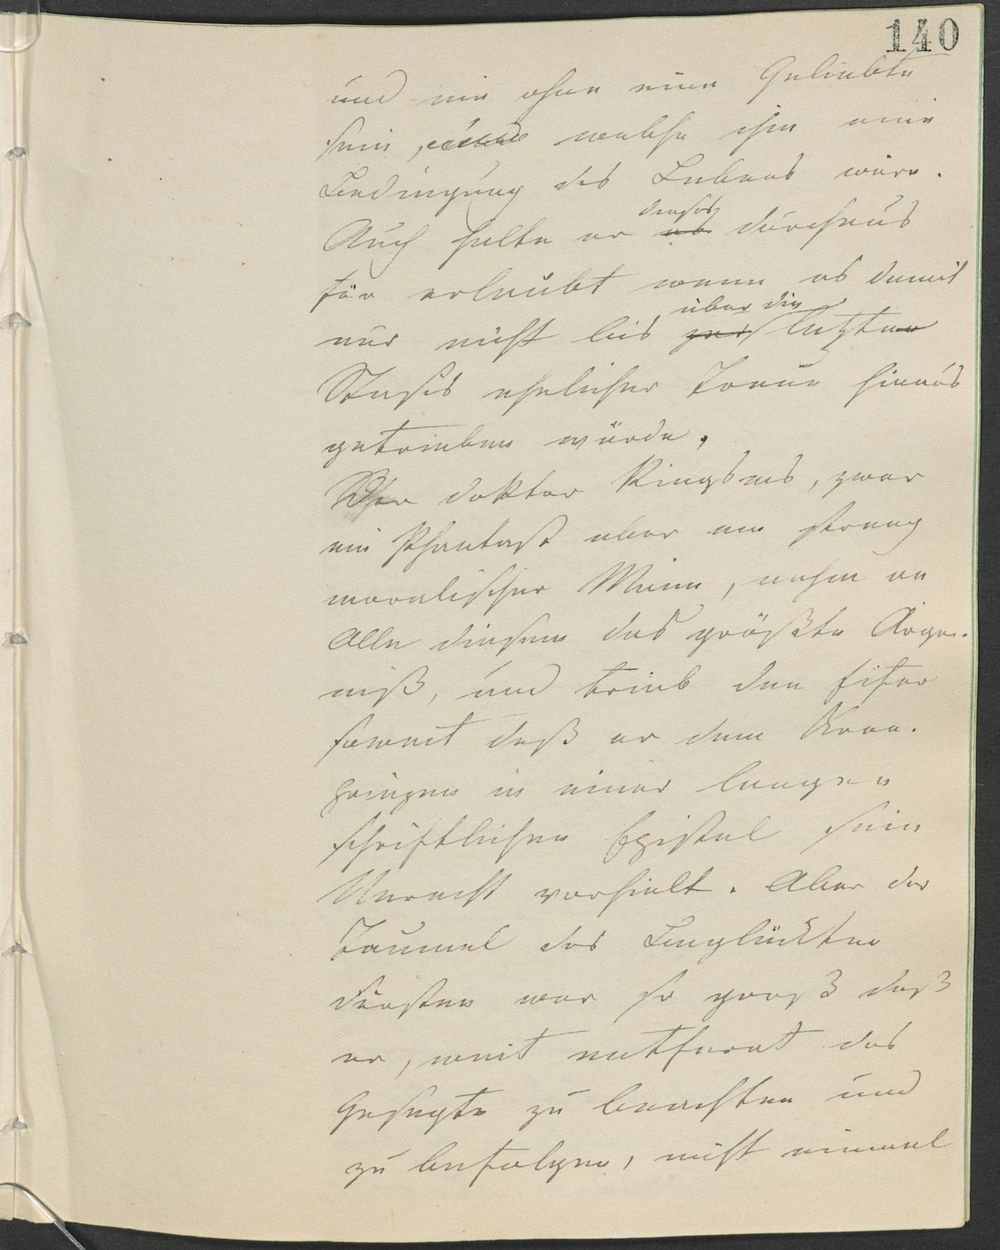 140
und nie ohne eine Geliebte
sein, welche ihm eine
Bedingung des Lebens wäre.
Auch halte er dieses durchaus
für erlaubt wenn es damit
nur nicht bis über die letzten
ehelicher Treue hinaus
getrieben würde.
Der Doktor Ringseis, zwar
ein Phantast aber ein streng
moralischer Mann, nahm an
Alle diesem das größte Ärger-
niß, und trieb den Eifer
soweit daß er dem Kron-
prinzen in einer langen
schriftlichen Epistel sein
Unrecht vorhielt. Aber der
Taumel des Beglückten
Fürsten war so groß daß
er, weit entfernt das
Gesagte zu beachten und
zu befolgen, nicht einmal